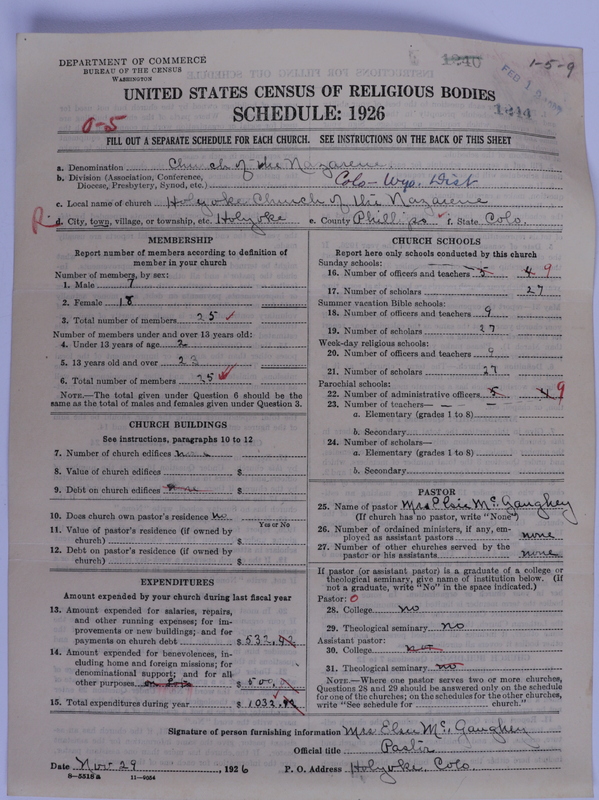 DEPARTMENT OF COMMERCE
BUREAU OF THE CENSUS
WASHINGTON
1240
FEB 1
1-5-9
1244
UNITED STATES CENSUS OF RELIGIOUS BODIES
SCHEDULE: 1926
0-5
FILL OUT A SEPARATE SCHEDULE FOR EACH CHURCH. SEE INSTRUCTIONS ON THE BACK OF THIS SHEET
a. Denomination Church of the Nazarene
b. Division (Association, Conference,
Diocese, Presbytery, Synod, etc.) Colo-Wyo. Dist
c. Local name of church Holyoke Church of the Nazarene
R d. City, town, village, or township, etc. Holyoke e. County Phillips f. State Colo.
MEMBERSHIP
Report number of members according to definition of
member in your church
Number of members, by sex:
1. Male 7
2. Female 18
3. Total number of members 25
Number of members under and over 13 years old:
4. Under 13 years of age 2
5. 13 years old and over 23
6. Total number of members 25
NOTE.—The total given under Question 6 should be
the same as the total of males and females given under Question 3.
CHURCH BUILDINGS
See instructions, paragraphs 10 to 12
7. Number of church edifices none
8. Value of church edifices $
9. Debt on church edifices none $
10. Does church own pastor's residence no
Yes or No
11. Value of pastor's residence (if owned by
church) $
12. Debt on pastor's residence (if owned by
church) $
EXPENDITURES
Amount expended by your church during last fiscal year
13. Amount expended for salaries, repairs,
and other running expenses; for im-
provements or new buildings; and for
payments on church debt $ 532.42
14. Amount expended for benevolences, in-
cluding home and foreign missions; for
denominational support; and for all
other purposes $ 500.
15. Total expenditures during year $ 1032.42
CHURCH SCHOOLS
Report here only schools conducted by this church
Sunday schools:
16. Number of officers and teachers 5 4 9
17. Number of scholars 27
Summer vacation Bible schools:
18. Number of officers and teachers 9
19. Number of scholars 27
Week-day religious schools:
20. Number of officers and teachers 9
21. Number of scholars 27
Parochial schools:
22. Number of administrative officers 5 4 9
23. Number of teachers—
a. Elementary (grades 1 to 8)
b. Secondary
24. Number of scholars—
a. Elementary (grades 1 to 8)
b. Secondary
PASTOR
25. Name of pastor Mrs Elsie McGaughey
(If church has no pastor, write "None")
26. Number of ordained ministers, if any, em-
ployed as assistant pastors none
27. Number of other churches served by the
pastor or his assistants none
If pastor (or assistant pastor) is a graduate of a college or
theological seminary, give name of institution below. (If
not a graduate, write "No" in the space indicated.)
Pastor: 0
28. College no
29. Theological seminary no
Assistant pastor:
30. College no
31. Theological seminary no
NOTE.—Where one pastor serves two or more churches,
Questions 28 and 29 should be answered only on the schedule
for one of the churches; on the schedules for the other churches,
write "See schedule for church."
Signature of person furnishing information Mrs Elsie McGaughey
Official title Pastor
Date Nov 29, 1926 P. O. Address Holyoke, Colo
8-5518a 11-9054